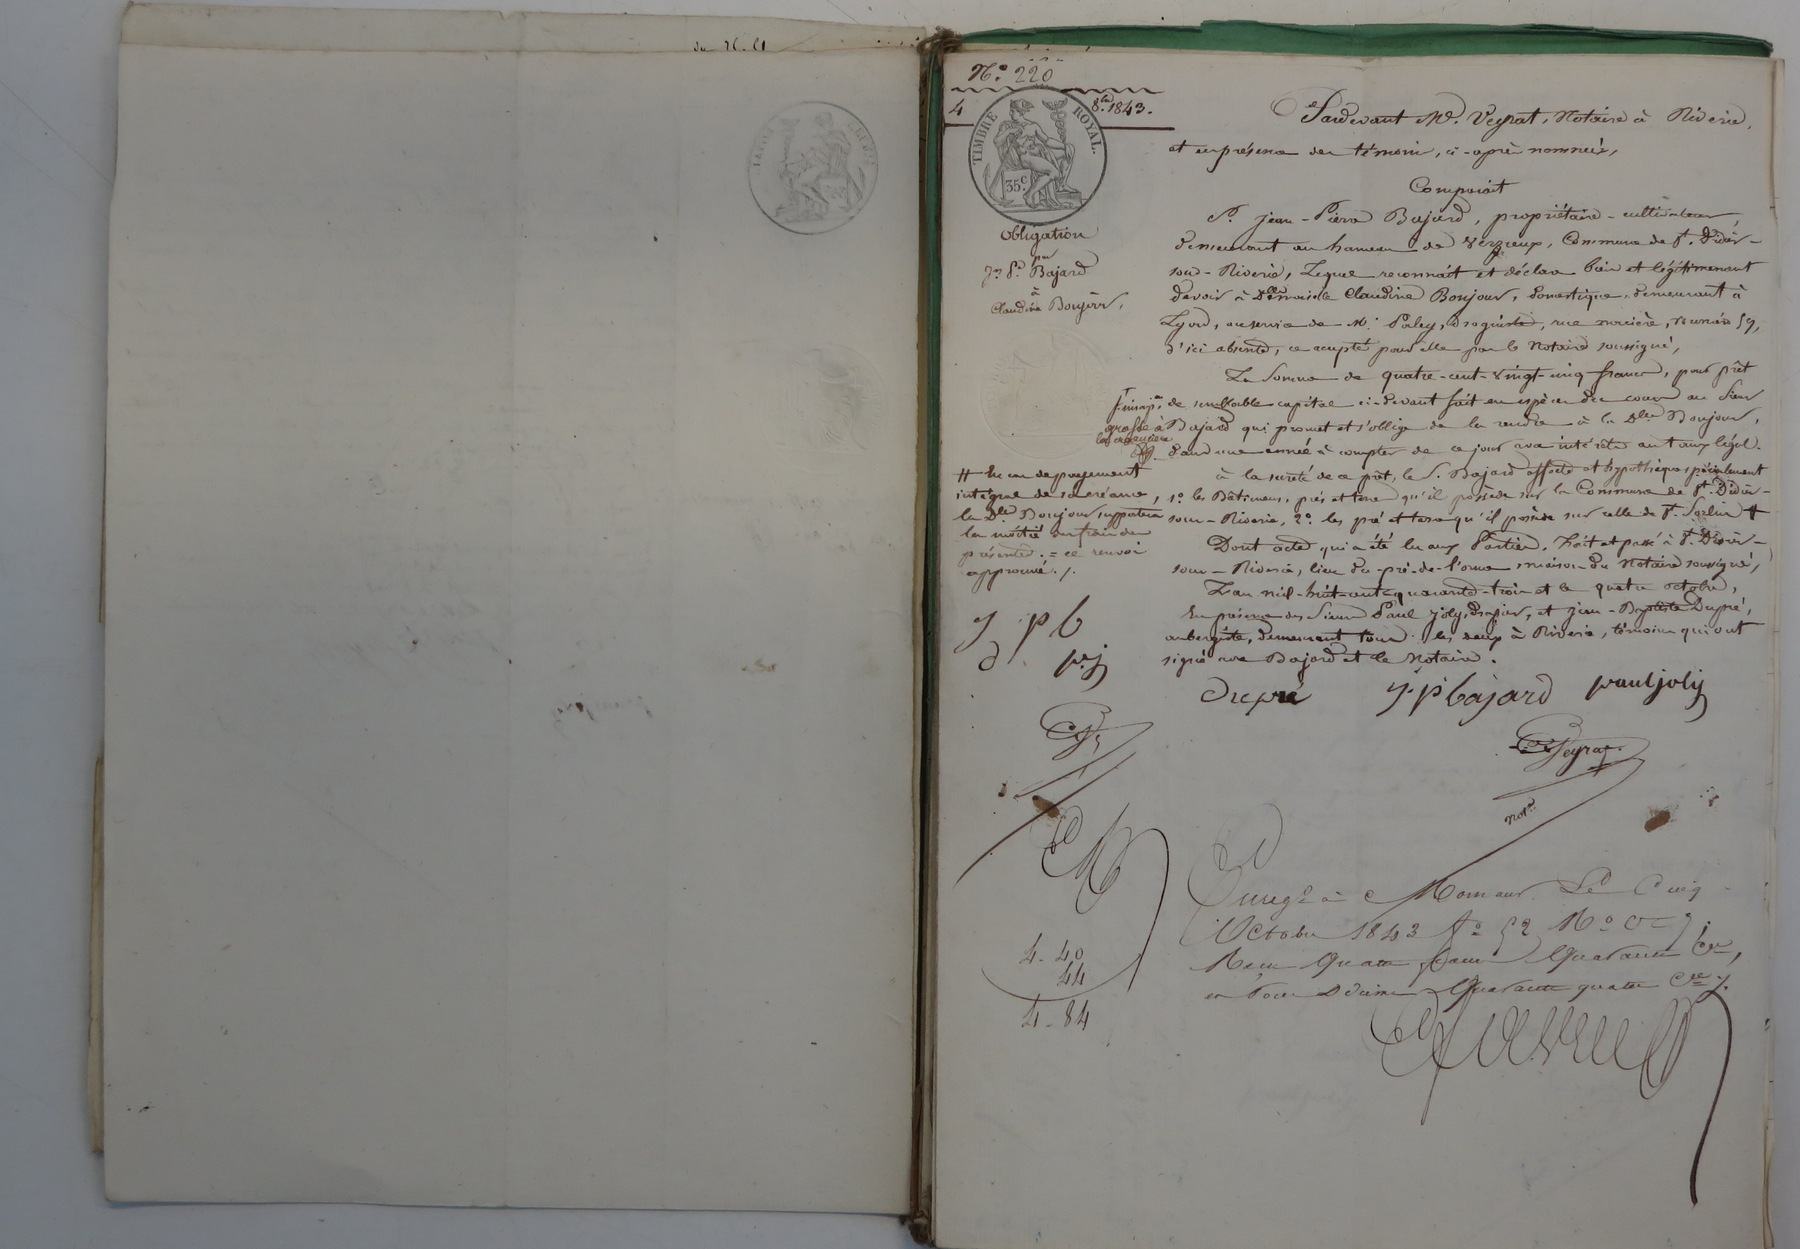 N.° 220
4 8.bre 1843.
TIMBRE ROYAL.
35c
Obligation
par
Jn. Pre. Bajard
à
Claudine Bonjour,
Pardevant Me. Veyrat, Notaire à Riverie,
et en présence des témoins, ci-après nommés,
Comparait
Sr. Jean-Pierre Bajard, propriétaire-cultivateur,
demeurant au hameau de Commune de St. Didier-
sous-Riverie, Lequel reconnait et déclare bien et légitimement
devoir à Demoiselle Claudine Bonjour, domestique, demeurant à
Lyon, au service de Mr. droguiste, rue mercière, numéro 59,
d'ici absente, ce accepté pour elle par le Notaire soussigné,
La Somme de quatre-cent-vingt-cinq francs, pour prêt
de semblable capital ci-devant fait en espèces du cours au Sieur
Bajard qui promet et s'oblige de la rendre à la Dlle Bonjour,
dans une année à compter de ce jour avec intérêts au taux légal.
à la sureté de ce prêt, le S. Bajard affecte et hypothèque spécialement
1°. les Bâtimens, prés et terres qu'il possède sur la Commune de St. Didier-
sous-Riverie, 2°. les pré et terre qu'il possède sur celle de St. Sorlin #
Dont acte qui a été lu aux Parties. Fait et passé à St. Didier-
sous-Riverie, lieu du pré-de-l'orme maison du Notaire soussigné,
L'an mil-huit-cent-quarante-trois et le quatre octobre,
En présence des Sieurs Paul Joly, et Jean-Baptiste Dupré,
aubergiste, demeurant tous les deux à Riverie, témoins qui ont
signé avec Bajard et le Notaire.
grosse à
la créancière
# En cas de payement
intégral de sa créance,
la Dlle Bonjour supportera
la moitié des frais des
présentes. = ce renvoi
approuvé ./.
j p b
d p.j
dupré j.p bajard paul joly
Veyrat
not.re
Enregé à Mornant Le Cinq
Octobre 1843 f° 52 R° Ce 7.
Recu Quatre francs Quarante Ces,
et Pour Décime Quarante quatre Cmes.
4-40
44
4-84